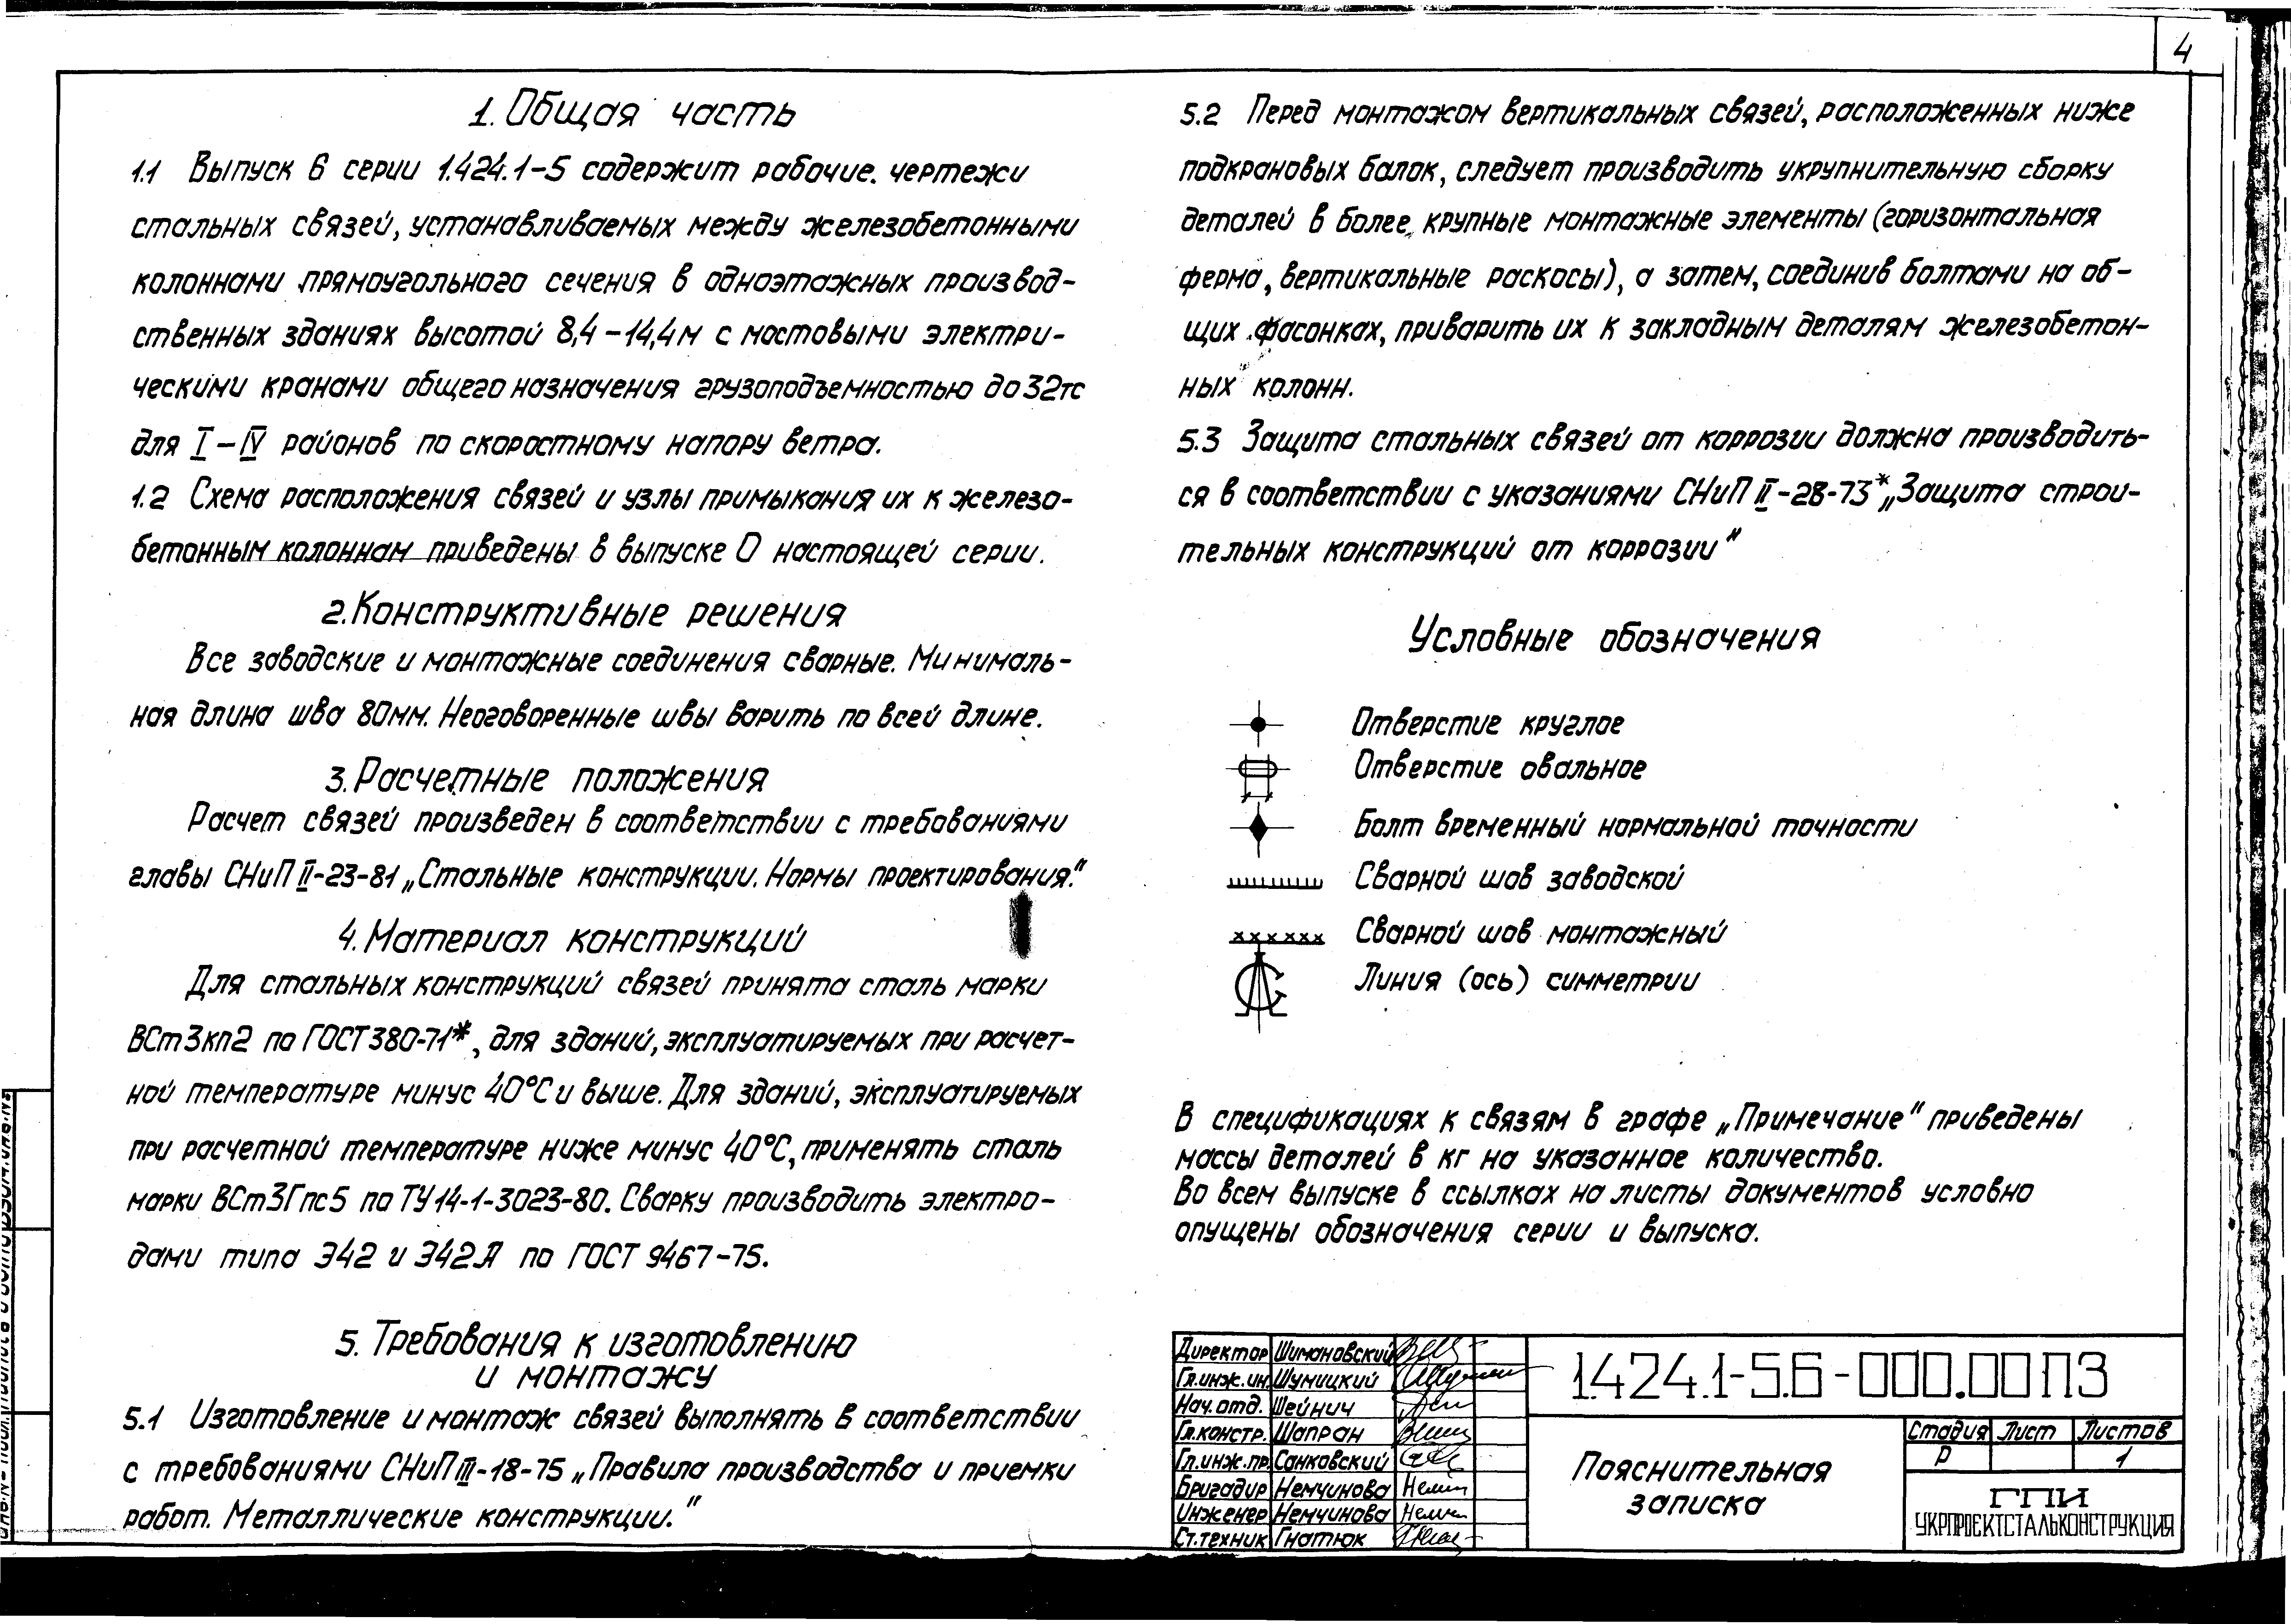 4
1. Общая часть
1.1 Выпуск 6 серии 1.424.1-5 содержит рабочие. чертежи
стальных связей, устанавливаемых между железобетонными
колоннами прямоугольного сечения в одноэтажных производ-
ственных зданиях высотой 8,4-14,4м с мостовыми электри-
ческими кранами общего назначения грузоподъемностью до 32тс
для I-IV районов по скоростному напору ветра.
1.2 Схема расположения связей и узлы примыкания их к железо-
бетонным колоннам приведены в выпуске 0 настоящей серии.
2. Конструктивные решения
Все заводские и монтажные соединения сварные. Минималь-
ная длина шва 80мм. Неоговоренные швы варить по всей длине.
3. Расчетные положения
Расчет связей произведен в соответствии с требованиями
главы СНиП II-23-81 „Стальные конструкции. Нормы проектирования."
4. Материал конструкций
Для стальных конструкций связей принята сталь марки
ВСт3кп2 по ГОСТ 380-71*, для зданий, эксплуатируемых при расчет-
ной температуре минус 40°С и выше. Для зданий, эксплуатируемых
при расчетной температуре ниже минус 40°С, применять сталь
марки ВСт3Гпс5 по ТУ14-1-3023-80. Сварку производить электро-
дами типа Э42 и Э42А по ГОСТ 9467-75.
5. Требования к изготовлению
и монтажу
5.1 Изготовление и монтаж связей выполнять в соответствии
с требованиями СНиП III-18-75 „Правила производства и приемки
работ. Металлические конструкции."
5.2 Перед монтажом вертикальных связей, расположенных ниже
подкрановых балок, следует производить укрупнительную сборку
деталей в более крупные монтажные элементы (горизонтальная
ферма, вертикальные раскосы), а затем, соединив болтами на об-
щих фасонках, приварить их к закладным деталям железобетон-
ных колонн.
5.3 Защита стальных связей от коррозии должна производить-
ся в соответствии с указаниями СНиП II-28-73* „Защита строи-
тельных конструкций от коррозии"
Условные обозначения
Отверстие круглое
Отверстие овальное
Болт временный нормальной точности
Сварной шов заводской
Сварной шов монтажный
Линия (ось) симметрии
В спецификациях к связям в графе „Примечание" приведены
массы деталей в кг на указанное количество.
Во всем выпуске в ссылках на листы документов условно
опущены обозначения серии и выпуска.
Директор Шимановский
Гл.инж.ин. Шумицкий
Нач. отд. Шейнич
Гл.констр. Шапран
Гл.инж.пр. Санковский
Бригадир Немчинова
Инженер Немчинова
Ст.техник Гнатюк
1.424.1-5.6-000.00ПЗ
Пояснительная
записка
Стадия Лист Листов
Р 1
ГПИ
УКРПРОЕКТСТАЛЬКОНСТРУКЦИЯ